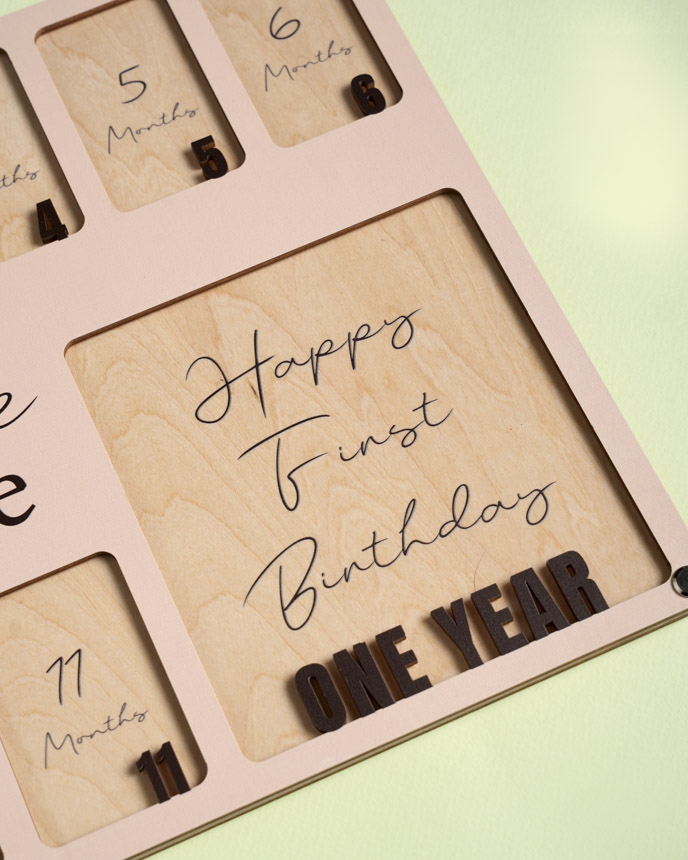 5
Months
5
6
Months
6
4
Happy
First
Birthday
ONE YEAR
11
Months
11